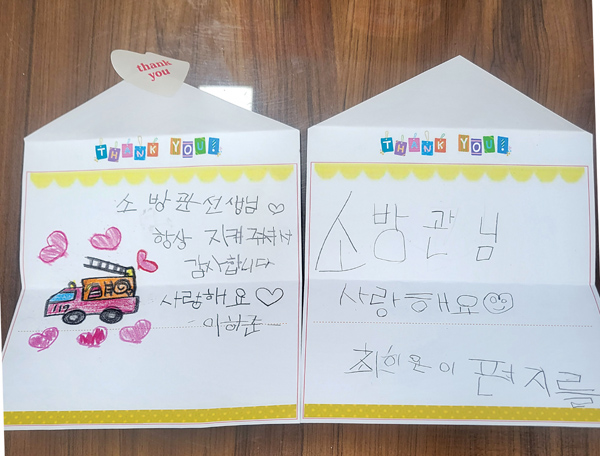 thank
you
THANK YOU!
소방관선생님♡
항상 지켜주셔서
감사합니다
사랑해요♡
이하준
119
THANK YOU!
소방관님
사랑해요
최희윤이 편지를